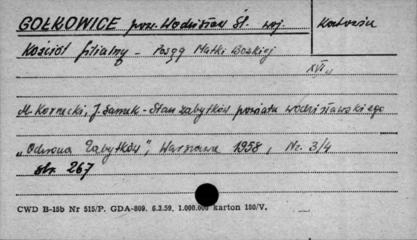 GOŁKOWICE pow. Wodzisław Śl. woj. Katowice
Kościół filialny - Posąg Matki Boskiej
XVI w
M. Kornecki, J. Samek - Stan zabytków powiatu wodzisławskiego
"Ochrona Zabytków", Warszawa 1958, Nr. 3/4
str. 267
CWD B-15b Nr 515/P. GDA-809. 6.3.59. 1.000.000 karton 180/V.